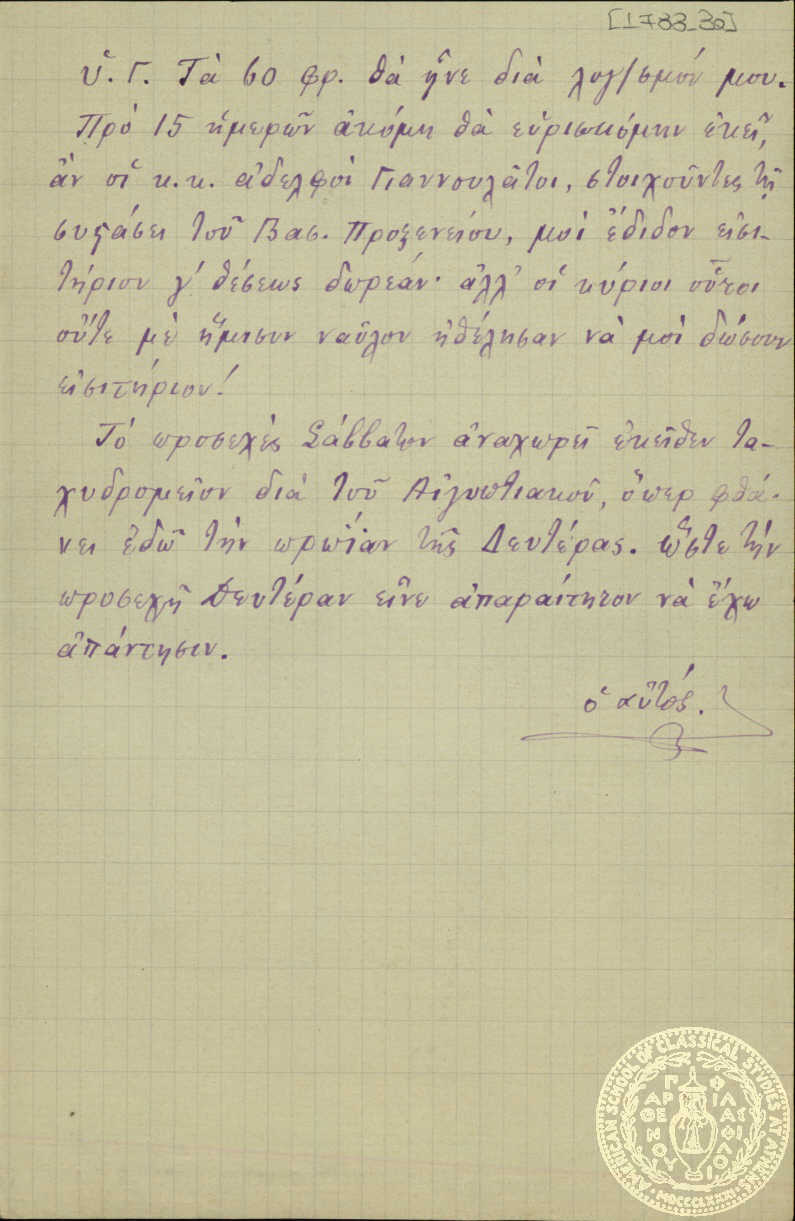 [1733_30]
ὑ. Γ. Τὰ 60 φρ. θὰ ᾖνε διὰ λογ/σμόν μου.
Πρὸ 15 ἡμερῶν ἀκόμη θὰ εὑρισκόμην ἐκεῖ,
ἂν οἱ κ.κ. ἀδελφοὶ Γιαννουλᾶτοι, στοιχοῦντες τῇ
συστάσει τοῦ Βασ. Προξενείου, μοὶ ἔδιδον εἰσι-
τήριον γ' θέσεως δωρεάν· ἀλλ' οἱ κύριοι οὗτοι
οὔτε μὲ ἥμισυν ναῦλον ἠθέλησαν νὰ μοὶ δώσουν
εἰσιτήριον!
Τὸ προσεχὲς Σάββατον ἀναχωρεῖ ἐκεῖθεν τα-
χυδρομεῖον διὰ τοῦ Αἰγυπτιακοῦ, ὅπερ φθά-
νει ἐδῶ τὴν πρωΐαν τῆς Δευτέρας. ὥστε τὴν
προσεχῆ Δευτέραν εἶνε ἀπαραίτητον νὰ ἔχω
ἀπάντησιν.
ὁ αὐτός.
AMERICAN SCHOOL OF CLASSICAL STUDIES AT ATHENS
ΠΑΡΘΕΝΟΥ ΦΙΛΑΣ ΦΙΛΟΙ
MDCCCLXXXI